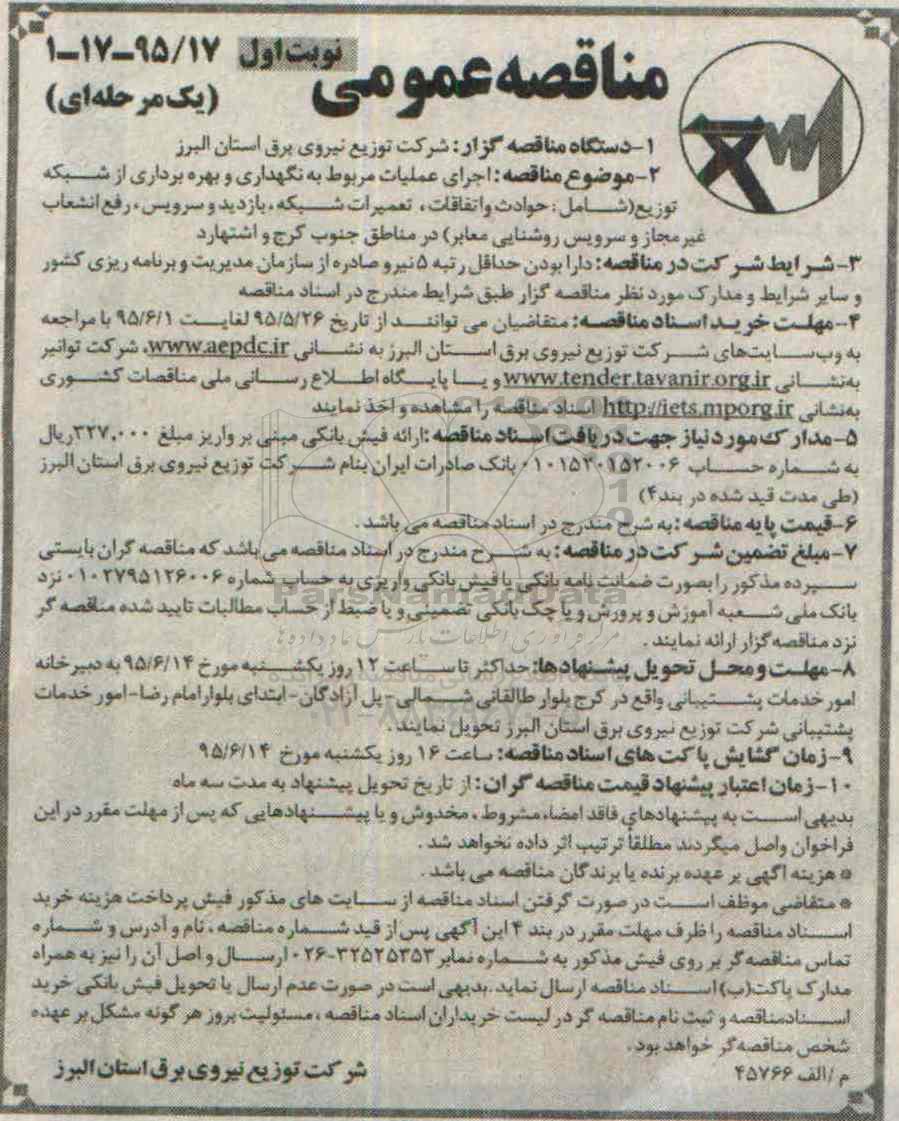 مناقصه عمومی
نوبت اول ۹۵/۱۷-۱۷-۱
(یک مرحله‌ای)
۱-دستگاه مناقصه گزار: شرکت توزیع نیروی برق استان البرز
۲-موضوع مناقصه: اجرای عملیات مربوط به نگهداری و بهره برداری از شبکه
توزیع(شامل: حوادث واتفاقات، تعمیرات شبکه، بازدید و سرویس، رفع انشعاب
غیرمجاز و سرویس روشنایی معابر) در مناطق جنوب کرج و اشتهارد
۳-شرایط شرکت در مناقصه: دارا بودن حداقل رتبه ۵ نیرو صادره از سازمان مدیریت و برنامه ریزی کشور
و سایر شرایط و مدارک مورد نظر مناقصه گزار طبق شرایط مندرج در اسناد مناقصه
۴-مهلت خرید اسناد مناقصه: متقاضیان می توانند از تاریخ ۹۵/۵/۲۶ لغایت ۹۵/۶/۱ با مراجعه
به وب‌سایت‌های شرکت توزیع نیروی برق استان البرز به نشانی www.aepdc.ir، شرکت توانیر
به‌نشانی www.tender.tavanir.org.ir و یا پایگاه اطلاع رسانی ملی مناقصات کشوری
به‌نشانی http://iets.mporg.ir اسناد مناقصه را مشاهده و اخذ نمایند
۵-مدارک مورد نیاز جهت دریافت اسناد مناقصه: ارائه فیش بانکی مبنی بر واریز مبلغ ۳۲۷,۰۰۰ریال
به شماره حساب ۰۱۰۱۵۲۰۱۵۲۰۰۶ بانک صادرات ایران بنام شرکت توزیع نیروی برق استان البرز
(طی مدت قید شده در بند۴)
۶-قیمت پایه مناقصه: به شرح مندرج در اسناد مناقصه می باشد.
۷-مبلغ تضمین شرکت در مناقصه: به شرح مندرج در اسناد مناقصه می باشد که مناقصه گران بایستی
سپرده مذکور را بصورت ضمانت نامه بانکی یا فیش بانکی واریزی به حساب شماره ۰۱۰۲۷۹۵۱۲۶۰۰۶ نزد
بانک ملی شعبه آموزش و پرورش و یا چک بانکی تضمینی و یا ضبط از حساب مطالبات تایید شده مناقصه گر
نزد مناقصه گزار ارائه نمایند.
۸-مهلت و محل تحویل پیشنهادها: حداکثر تا ساعت ۱۲ روز یکشنبه مورخ ۹۵/۶/۱۴ به دبیرخانه
امور خدمات پشتیبانی واقع در کرج بلوار طالقانی شمالی-پل آزادگان-ابتدای بلوار امام رضا-امور خدمات
پشتیبانی شرکت توزیع نیروی برق استان البرز تحویل نمایند.
۹-زمان گشایش پاکت های اسناد مناقصه: ساعت ۱۶ روز یکشنبه مورخ ۹۵/۶/۱۴
۱۰-زمان اعتبار پیشنهاد قیمت مناقصه گران: از تاریخ تحویل پیشنهاد به مدت سه ماه
بدیهی است به پیشنهادهای فاقد امضاء، مشروط، مخدوش و یا پیشنهادهایی که پس از مهلت مقرر در این
فراخوان واصل میگردند مطلقاً ترتیب اثر داده نخواهد شد.
* هزینه آگهی بر عهده برنده یا برندگان مناقصه می باشد.
* متقاضی موظف است در صورت گرفتن اسناد مناقصه از سایت های مذکور فیش پرداخت هزینه خرید
اسناد مناقصه را ظرف مهلت مقرر در بند ۴ این آگهی پس از قید شماره مناقصه، نام و آدرس و شماره
تماس مناقصه گر بر روی فیش مذکور به شماره نمابر ۳۲۵۲۵۳۵۳-۰۲۶ ارسال و اصل آن را نیز به همراه
مدارک پاکت(ب) اسناد مناقصه ارسال نماید. بدیهی است در صورت عدم ارسال یا تحویل فیش بانکی خرید
اسنادمناقصه و ثبت نام مناقصه گر در لیست خریداران اسناد مناقصه، مسئولیت بروز هر گونه مشکل بر عهده
شخص مناقصه گر خواهد بود.
م/الف ۴۵۷۶۶
شرکت توزیع نیروی برق استان البرز
ParsNamadData